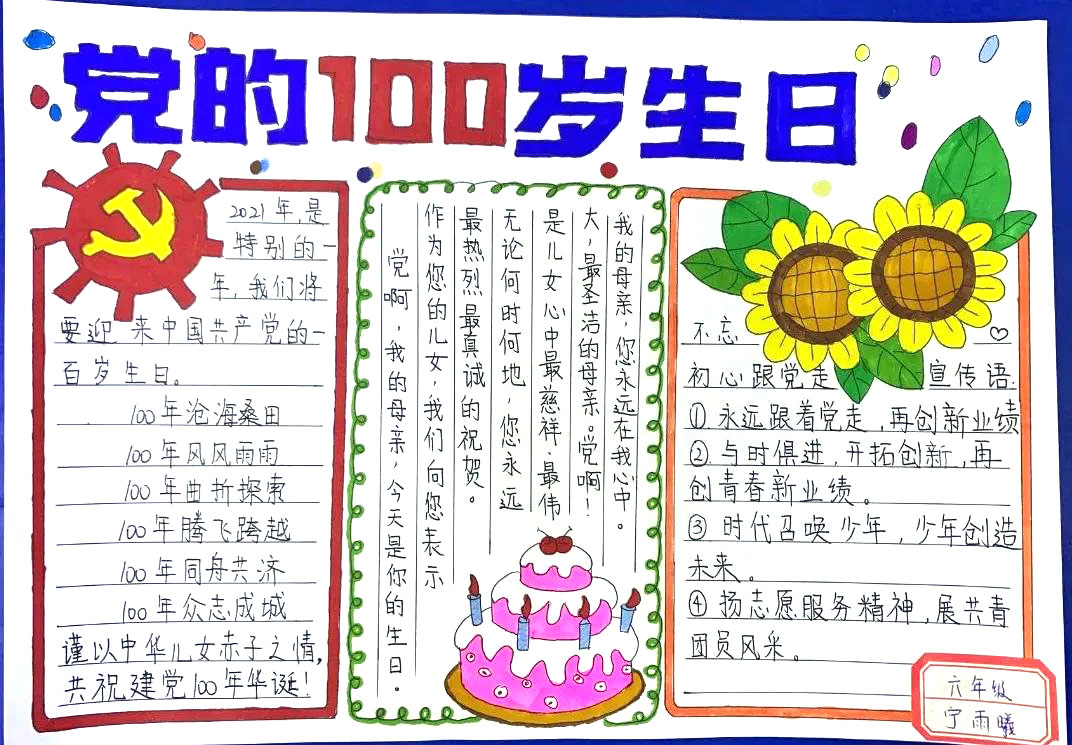 党的100岁生日
2021年,是
特别的一
年,我们将
要迎来中国共产党的一
百岁生日。
100年沧海桑田
100年风风雨雨
100年曲折探索
100年腾飞跨越
100年同舟共济
100年众志成城
谨以中华儿女赤子之情,
共祝建党100年华诞!
党啊,我的母亲,今天是你的生日。
作为您的儿女,我们向您表示
最热烈最真诚的祝贺。
无论何时何地,您永远
是儿女心中最慈祥.最伟
大,最圣洁的母亲。党啊!
我的母亲,您永远在我心中。
不忘
初心跟党走 宣传语.
①永远跟着党走,再创新业绩
②.与时俱进,开拓创新,再
创青春新业绩。
③时代召唤少年,少年创造
未来。
④扬志愿服务精神,展共青
团员风采。
六年级
宁雨曦